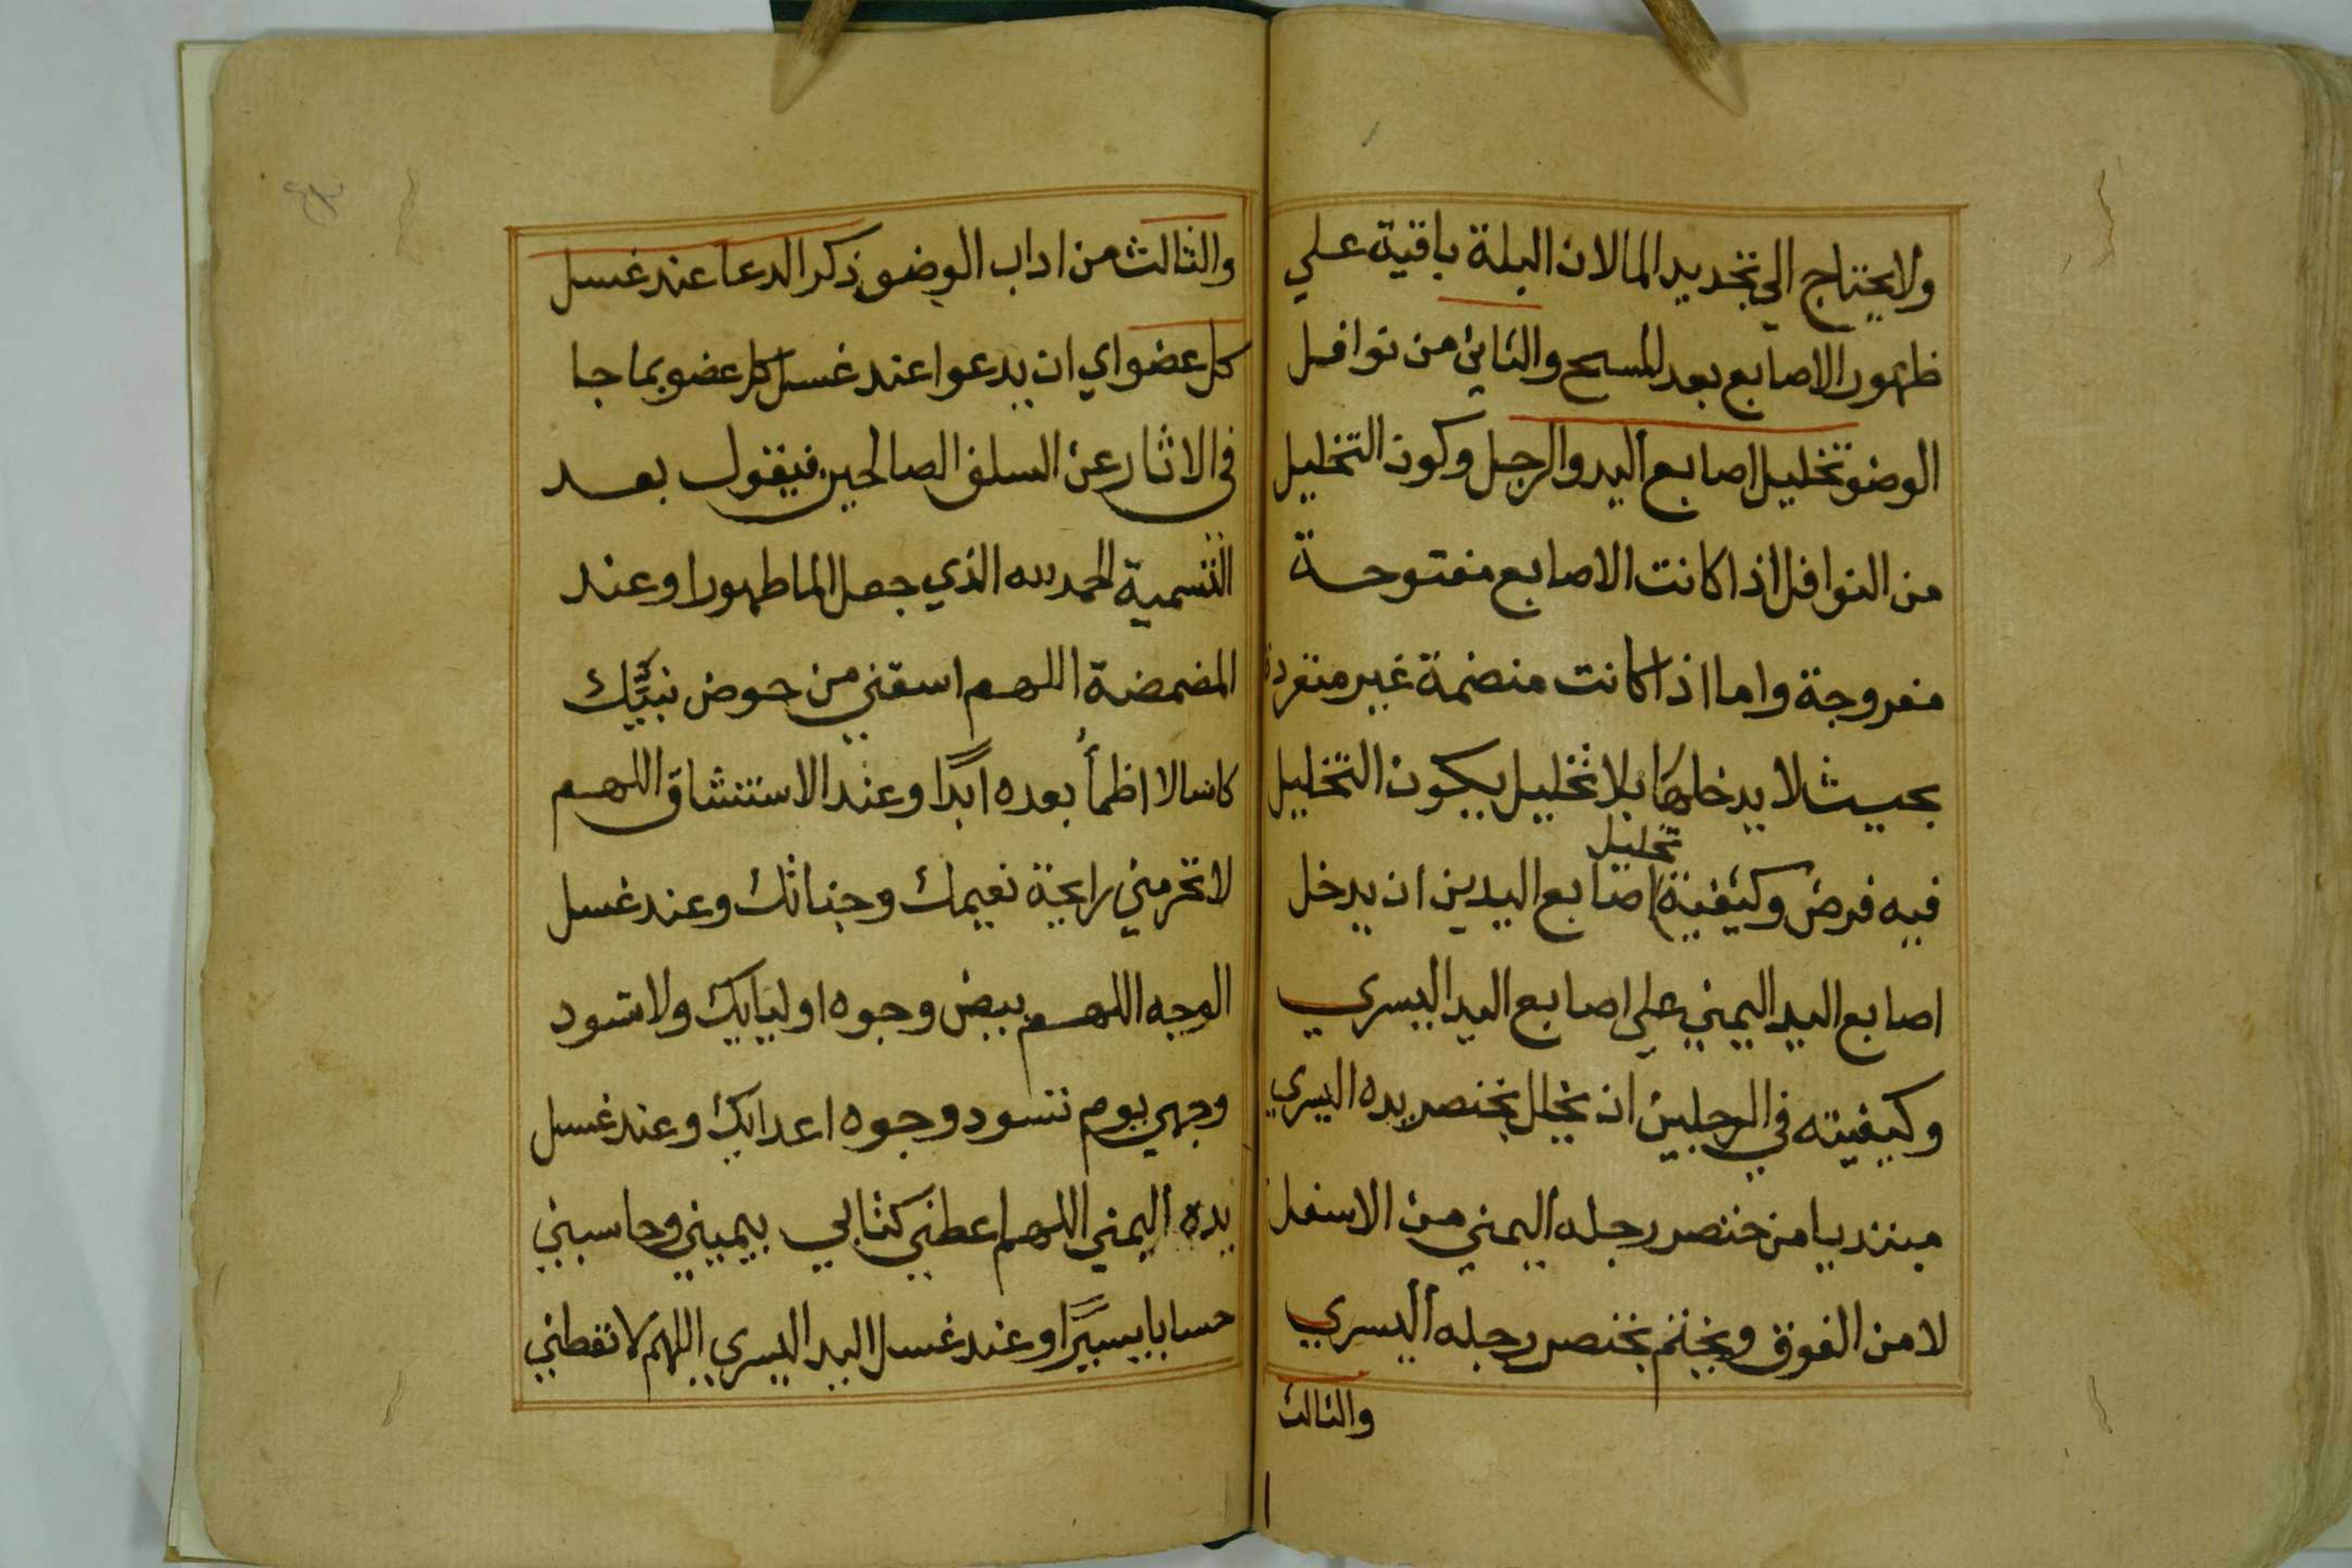 ولا يحتاج الي تجديد الما لان البلة باقية علي
ظهور الاصابع بعد المسح والثاني من نوافل
الوضو تخليل اصابع اليد والرجل وكون التخليل
من النوافل اذا كانت الاصابع مفتوحة
مفروجة واما اذا كانت منضمة غير متفردة
بحيث لا يدخلها بلا تخليل يكون التخليل
فيه فرض وكيفية تخليل اصابع اليدين ان يدخل
اصابع اليد اليمني علي اصابع اليد اليسري
وكيفيته في الرجلين ان يخلل بخنصر يده اليسري
مبتديا من خنصر رجله اليمني من الاسفل
لا من الفوق ويختم بخنصر رجله اليسري
والثالث
والثالث من اداب الوضو ذكر الدعا عند غسل
كل عضو اي ان يدعوا عند غسل كل عضو بما جا
في الاثار عن السلف الصالحين فيقول بعد
التسمية الحمد لله الذي جعل الما طهورا وعند
المضمضة اللهم اسقني من حوض نبيّك
كاسا لا اظمأ بعده ابدًا وعند الاستنشاق اللهم
لا تحرمني رايحة نعيمك وجناتك وعند غسل
الوجه اللهم بيض وجوه اوليايك ولا تسود
وجهي يوم تسود وجوه اعدايك وعند غسل
يده اليمني اللهم اعطني كتابي بيميني وحاسبني
حسابا يسيرًا وعند غسل اليد اليسري اللهم لا تعطني